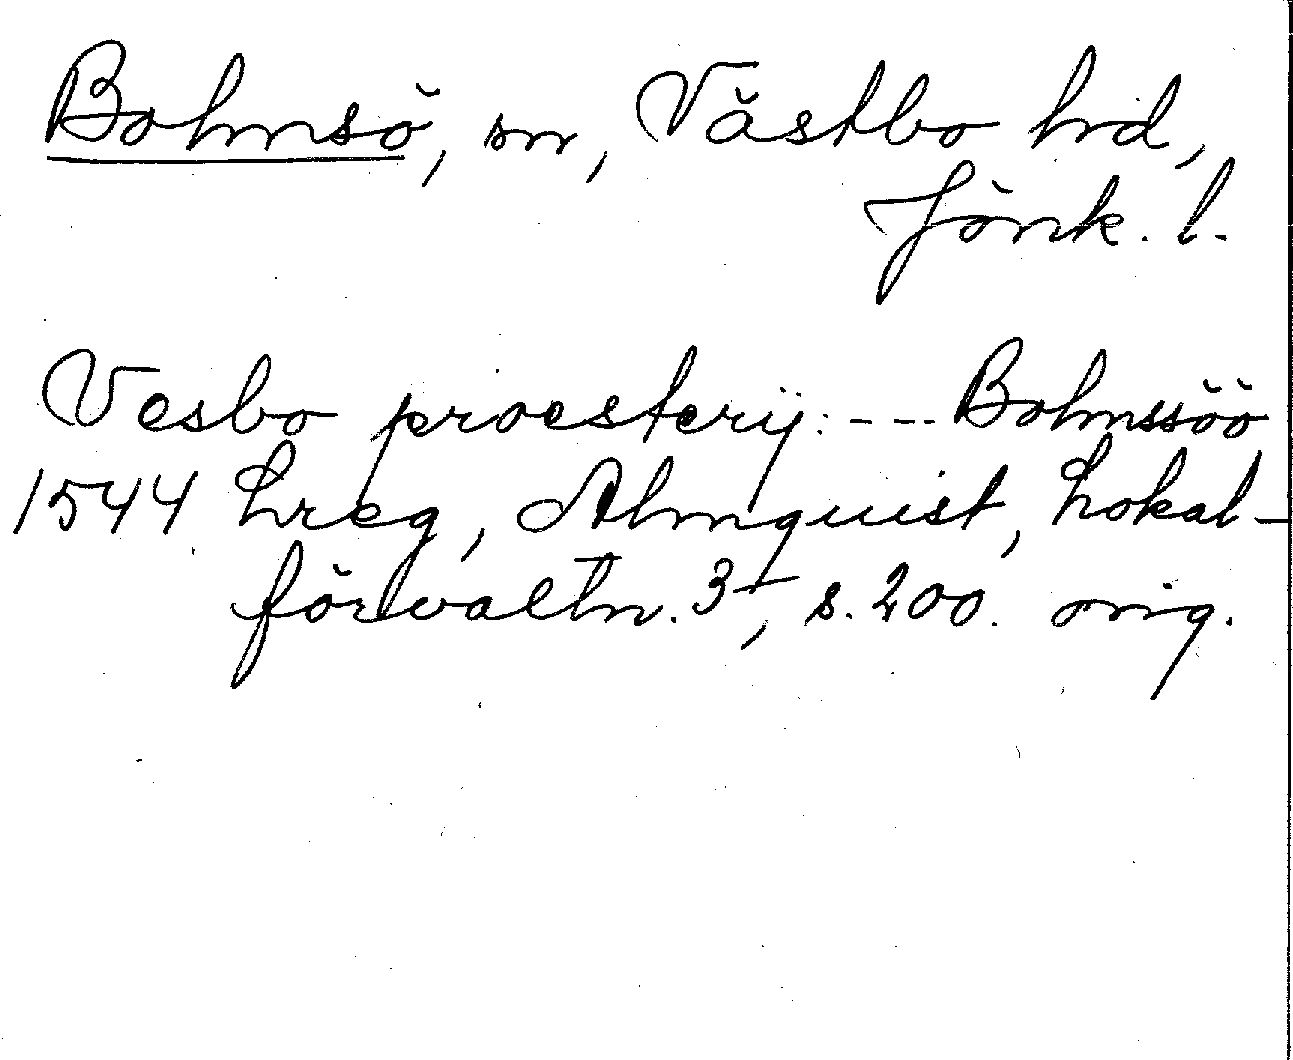 Bolmsö, sn, Västbo hd,
Jönk. l.
Vesbo proesterij: --- Bolmssöö
1544 Lreg, Almquist, Lokal-
förvaltn. 3, s. 200. orig.